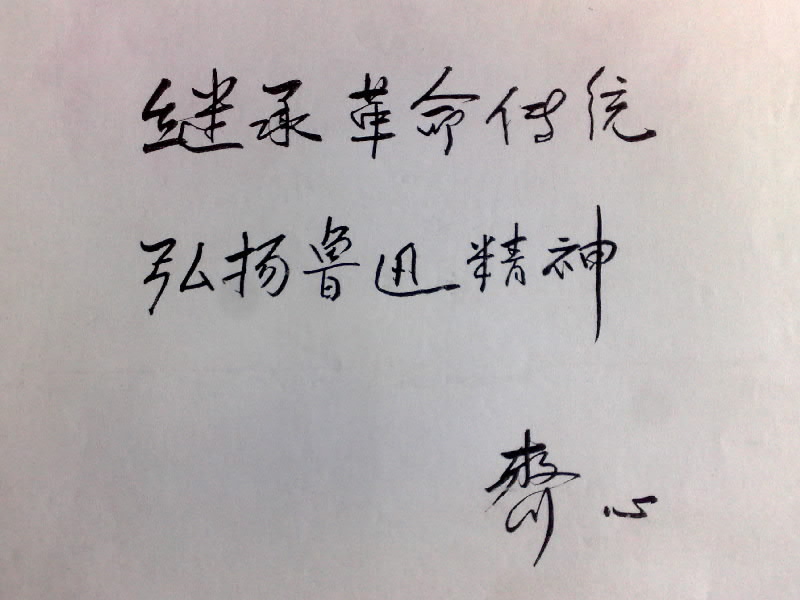 继承革命传统
弘扬鲁迅精神
齊心